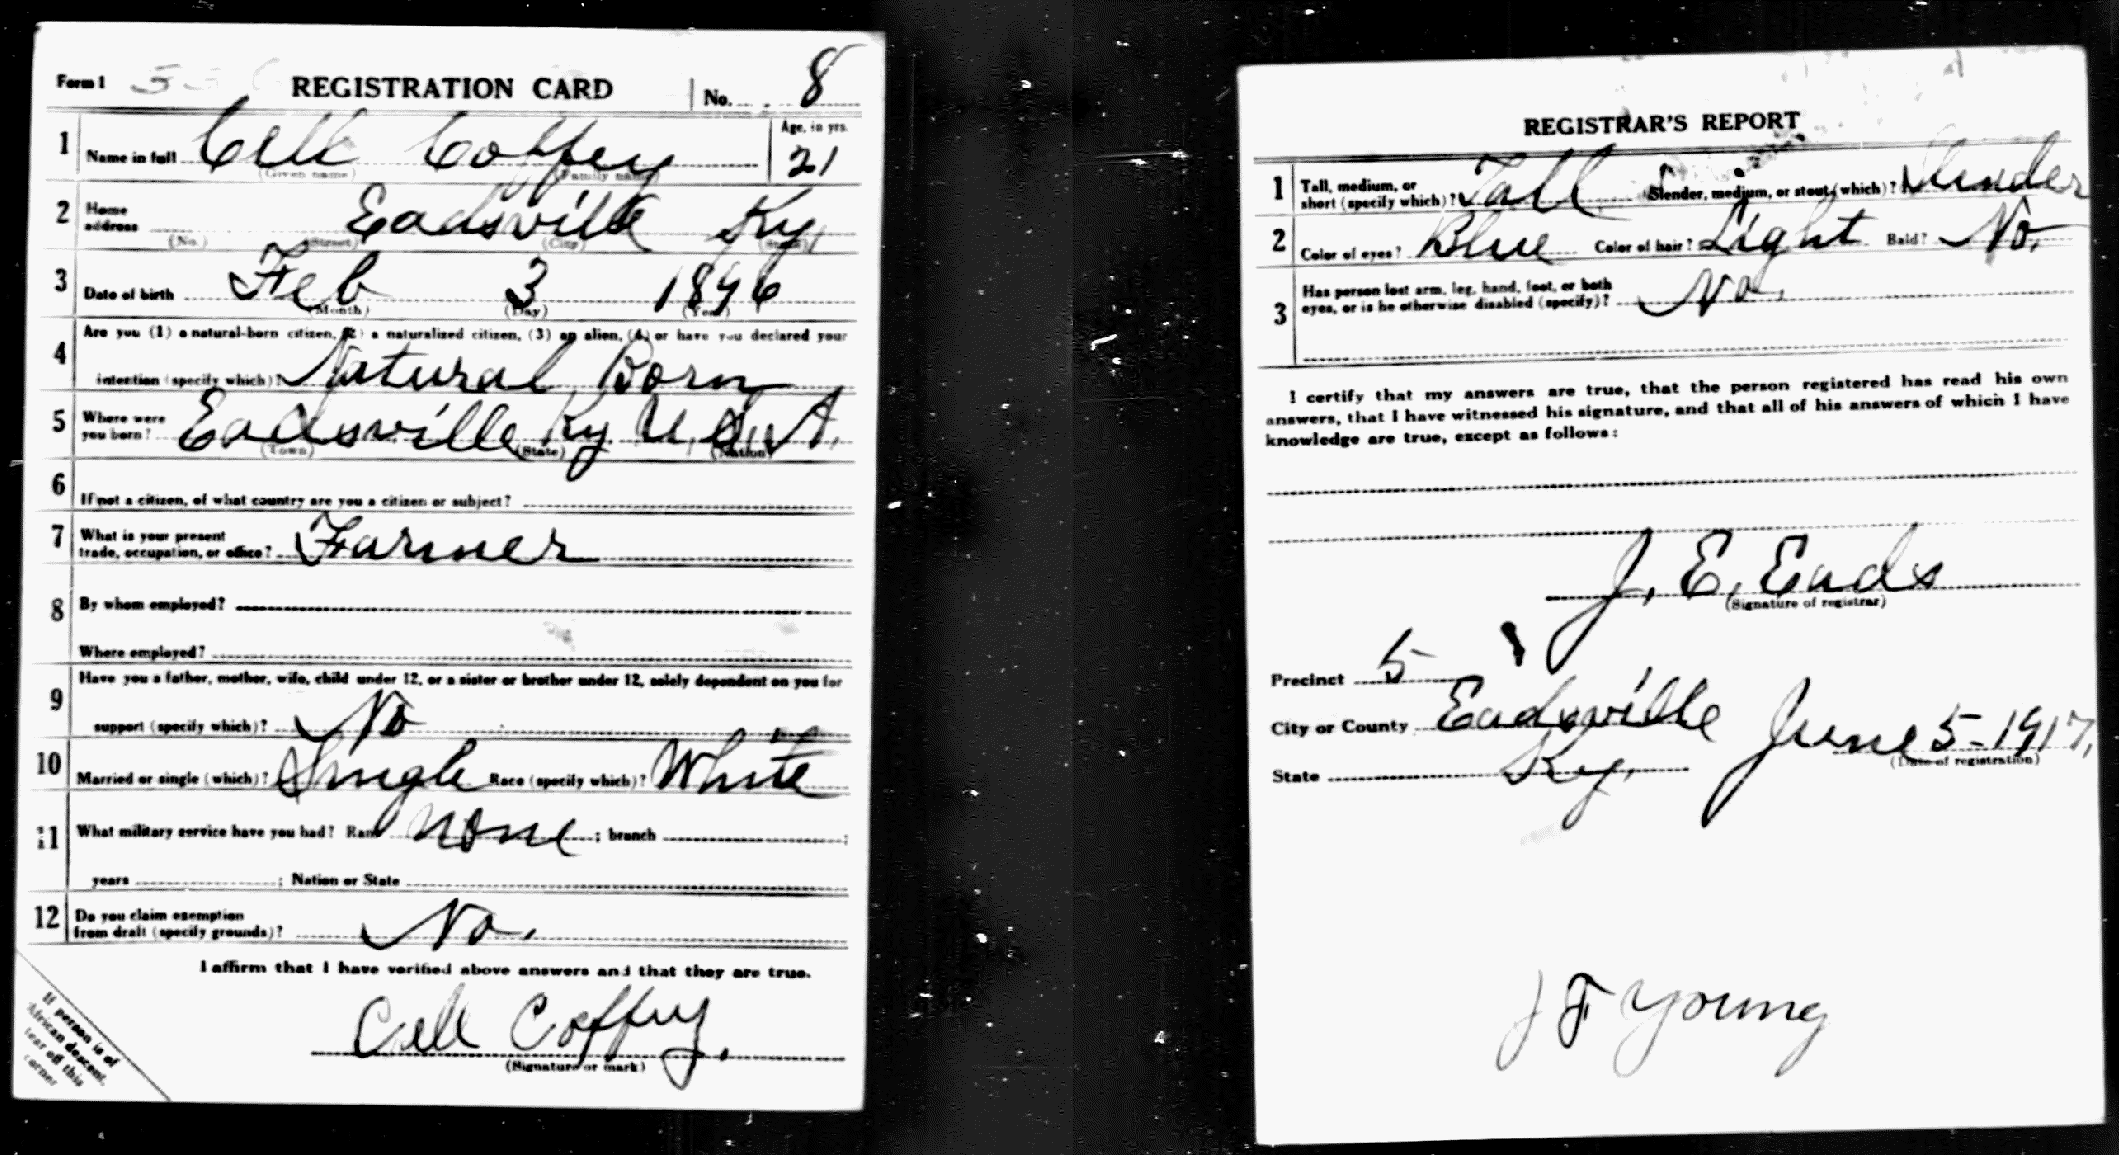 Form 1 REGISTRATION CARD No. 8
1 Name in full Cell Coffey Age, in yrs. 21
(Given name) (Family name)
2 Home address Eadsville Ky
(No.) (Street) (City) (State)
3 Date of birth Feb 3 1896
(Month) (Day) (Year)
4 Are you (1) a natural-born citizen, (2) a naturalized citizen, (3) an alien, (4) or have you declared your
intention (specify which)? Natural Born
5 Where were you born? Eadsville Ky U.S.A.
(Town) (State) (Nation)
6 If not a citizen, of what country are you a citizen or subject?
7 What is your present trade, occupation, or office? Farmer
8 By whom employed?
Where employed?
9 Have you a father, mother, wife, child under 12, or a sister or brother under 12, solely dependent on you for
support (specify which)? No
10 Married or single (which)? Single Race (specify which)? White
11 What military service have you had? Rank None ; branch ;
years ; Nation or State
12 Do you claim exemption from draft (specify grounds)? No.
I affirm that I have verified above answers and that they are true.
Cell Coffey.
(Signature or mark)
If person is of
African descent,
tear off this
corner
REGISTRAR'S REPORT
1 Tall, medium, or short (specify which)? Tall Slender, medium, or stout (which)? Slender
2 Color of eyes? Blue Color of hair? Light Bald? No.
3 Has person lost arm, leg, hand, foot, or both
eyes, or is he otherwise disabled (specify)? No.
I certify that my answers are true, that the person registered has read his own
answers, that I have witnessed his signature, and that all of his answers of which I have
knowledge are true, except as follows:
J. E. Eads
(Signature of registrar)
Precinct 5
City or County Eadsville June 5-1917,
State Ky. (Date of registration)
J F Young